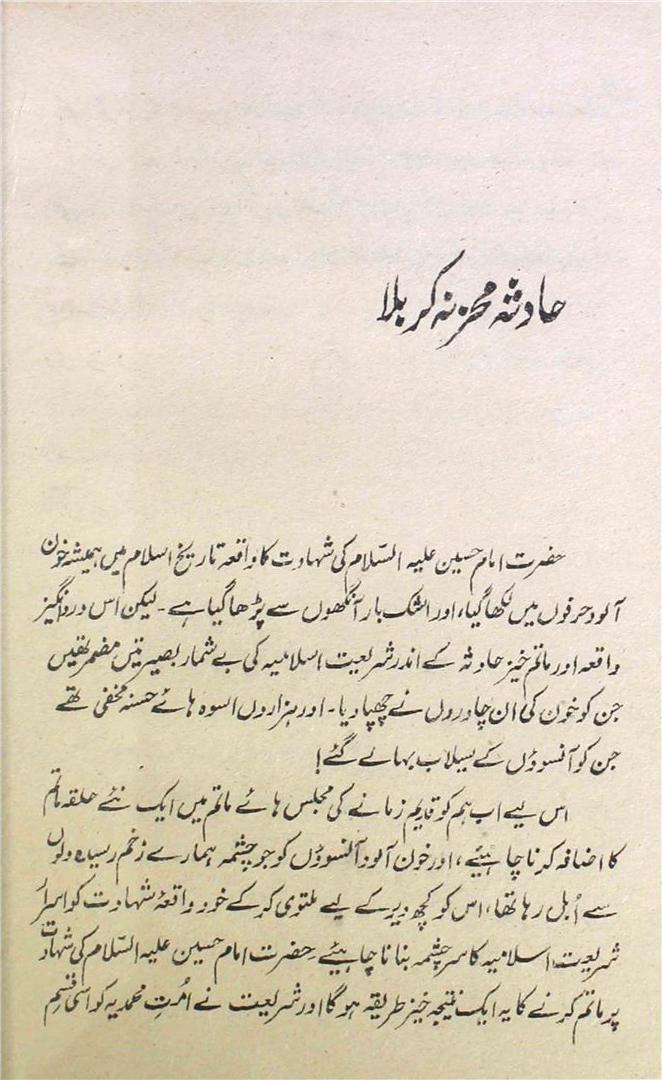 حادثہ محزنہ کربلا
حضرت امام حسین علیہ السّلام کی شہادت کا واقعہ تاریخ اسلام میں ہمیشہ خون
آلود حرفوں میں لکھا گیا، اور اشک بار آنکھوں سے پڑھا گیا ہے۔ لیکن اس درد انگیز
واقعہ اور ماتم خیز حادثہ کے اندر شریعت اسلامیہ کی بے شمار بصیرتیں مضمر تھیں
جن کو خون کی ان چادروں نے چھپا دیا۔ اور ہزاروں اسوہ ہائے حسنہ مخفی تھے
جن کو آنسوؤں کے سیلاب بہا لے گئے!
اس لیے اب ہم کو قدیم زمانے کی مجلس ہائے ماتم میں ایک نئے حلقہ ماتم
کا اضافہ کرنا چاہیئے، اور خون آلود آنسوؤں کو جو چشمہ ہمارے زخم رسیدہ دلوں
سے اُبل رہا تھا، اس کو کچھ دیر کے لیے ملتوی کر کے خود واقعۂ شہادت کو اسرار
شریعت اسلامیہ کا سرچشمہ بنانا چاہیئے۔ حضرت امام حسین علیہ السّلام کی شہادت
پر ماتم کرنے کا یہ ایک نتیجہ خیز طریقہ ہوگا اور شریعت نے اُمّتِ محمدیہ کو اسی قسم